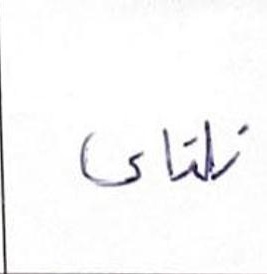 زلتای